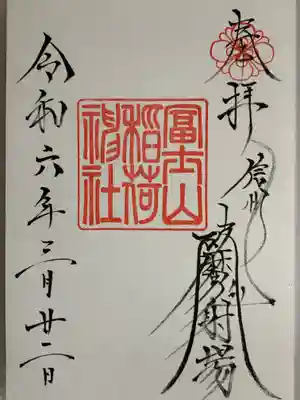 奉拝
信州
射場
冨士山
稲荷
神社
令和六年三月廿二日